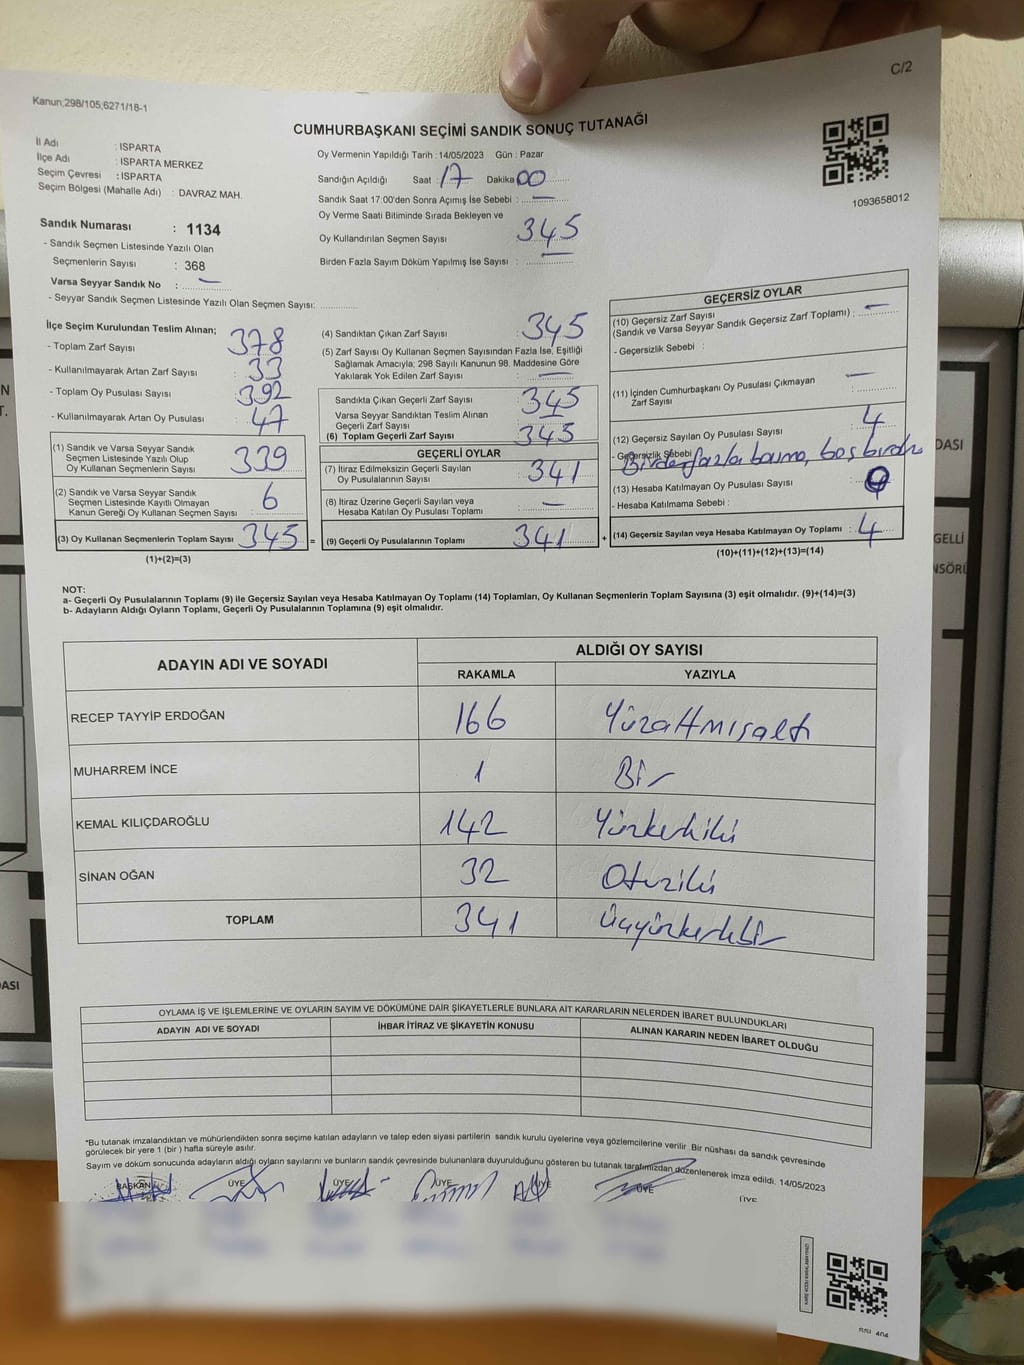 C/2
Kanun;298/105;6271/18-1
CUMHURBAŞKANI SEÇİMİ SANDIK SONUÇ TUTANAĞI
İl Adı : ISPARTA
İlçe Adı : ISPARTA MERKEZ
Seçim Çevresi : ISPARTA
Seçim Bölgesi (Mahalle Adı) : DAVRAZ MAH.
Sandık Numarası : 1134
- Sandık Seçmen Listesinde Yazılı Olan
Seçmenlerin Sayısı : 368
Varsa Seyyar Sandık No : —
- Seyyar Sandık Seçmen Listesinde Yazılı Olan Seçmen Sayısı: ............
Oy Vermenin Yapıldığı Tarih : 14/05/2023 Gün : Pazar
Sandığın Açıldığı Saat : 17 Dakika 00
Sandık Saat 17:00'den Sonra Açımış İse Sebebi : —
Oy Verme Saati Bitiminde Sırada Bekleyen ve
Oy Kullandırılan Seçmen Sayısı : 345
Birden Fazla Sayım Döküm Yapılmış İse Sayısı : —
1093658012
İlçe Seçim Kurulundan Teslim Alınan;
- Toplam Zarf Sayısı : 378
- Kullanılmayarak Artan Zarf Sayısı : 33
- Toplam Oy Pusulası Sayısı : 392
- Kullanılmayarak Artan Oy Pusulası : 47
(1) Sandık ve Varsa Seyyar Sandık
Seçmen Listesinde Yazılı Olup
Oy Kullanan Seçmenlerin Sayısı : 339
(2) Sandık ve Varsa Seyyar Sandık
Seçmen Listesinde Kayıtlı Olmayan
Kanun Gereği Oy Kullanan Seçmen Sayısı : 6
(3) Oy Kullanan Seçmenlerin Toplam Sayısı : 345 =
(1)+(2)=(3)
(4) Sandıktan Çıkan Zarf Sayısı : 345
(5) Zarf Sayısı Oy Kullanan Seçmen Sayısından Fazla İse, Eşitliği
Sağlamak Amacıyla; 298 Sayılı Kanunun 98. Maddesine Göre
Yakılarak Yok Edilen Zarf Sayısı : —
Sandıkta Çıkan Geçerli Zarf Sayısı : 345
Varsa Seyyar Sandıktan Teslim Alınan
Geçerli Zarf Sayısı : —
(6) Toplam Geçerli Zarf Sayısı : 345
GEÇERLİ OYLAR
(7) İtiraz Edilmeksizin Geçerli Sayılan
Oy Pusulalarının Sayısı : 341
(8) İtiraz Üzerine Geçerli Sayılan veya
Hesaba Katılan Oy Pusulası Toplamı : —
(9) Geçerli Oy Pusulalarının Toplamı : 341 +
GEÇERSİZ OYLAR
(10) Geçersiz Zarf Sayısı
(Sandık ve Varsa Seyyar Sandık Geçersiz Zarf Toplamı) : —
- Geçersizlik Sebebi :
(11) İçinden Cumhurbaşkanı Oy Pusulası Çıkmayan
Zarf Sayısı : —
(12) Geçersiz Sayılan Oy Pusulası Sayısı : 4
- Geçersizlik Sebebi : Birden fazla basma, boş bırakma
(13) Hesaba Katılmayan Oy Pusulası Sayısı : 0
- Hesaba Katılmama Sebebi :
(14) Geçersiz Sayılan veya Hesaba Katılmayan Oy Toplamı : 4
(10)+(11)+(12)+(13)=(14)
NOT:
a- Geçerli Oy Pusulalarının Toplamı (9) ile Geçersiz Sayılan veya Hesaba Katılmayan Oy Toplamı (14) Toplamları, Oy Kullanan Seçmenlerin Toplam Sayısına (3) eşit olmalıdır. (9)+(14)=(3)
b- Adayların Aldığı Oyların Toplamı, Geçerli Oy Pusulalarının Toplamına (9) eşit olmalıdır.
ADAYIN ADI VE SOYADI ALDIĞI OY SAYISI
RAKAMLA YAZIYLA
RECEP TAYYİP ERDOĞAN 166 Yüzaltmışaltı
MUHARREM İNCE 1 Bir
KEMAL KILIÇDAROĞLU 142 Yüzkırkiki
SİNAN OĞAN 32 Otuziki
TOPLAM 341 Üçyüzkırkbir
OYLAMA İŞ VE İŞLEMLERİNE VE OYLARIN SAYIM VE DÖKÜMÜNE DAİR ŞİKAYETLERLE BUNLARA AİT KARARLARIN NELERDEN İBARET BULUNDUKLARI
ADAYIN ADI VE SOYADI İHBAR İTİRAZ VE ŞİKAYETİN KONUSU ALINAN KARARIN NEDEN İBARET OLDUĞU
*Bu tutanak imzalandıktan ve mühürlendikten sonra seçime katılan adayların ve talep eden siyasi partilerin sandık kurulu üyelerine veya gözlemcilerine verilir. Bir nüshası da sandık çevresinde
görülecek bir yere 1 (bir) hafta süreyle asılır.
Sayım ve döküm sonucunda adayların aldığı oyların sayılarını ve bunların sandık çevresinde bulunanlara duyurulduğunu gösteren bu tutanak tarafımızdan düzenlenerek imza edildi. 14/05/2023
BAŞKAN ÜYE ÜYE ÜYE ÜYE ÜYE ÜYE
DASI
GELLİ
ASI